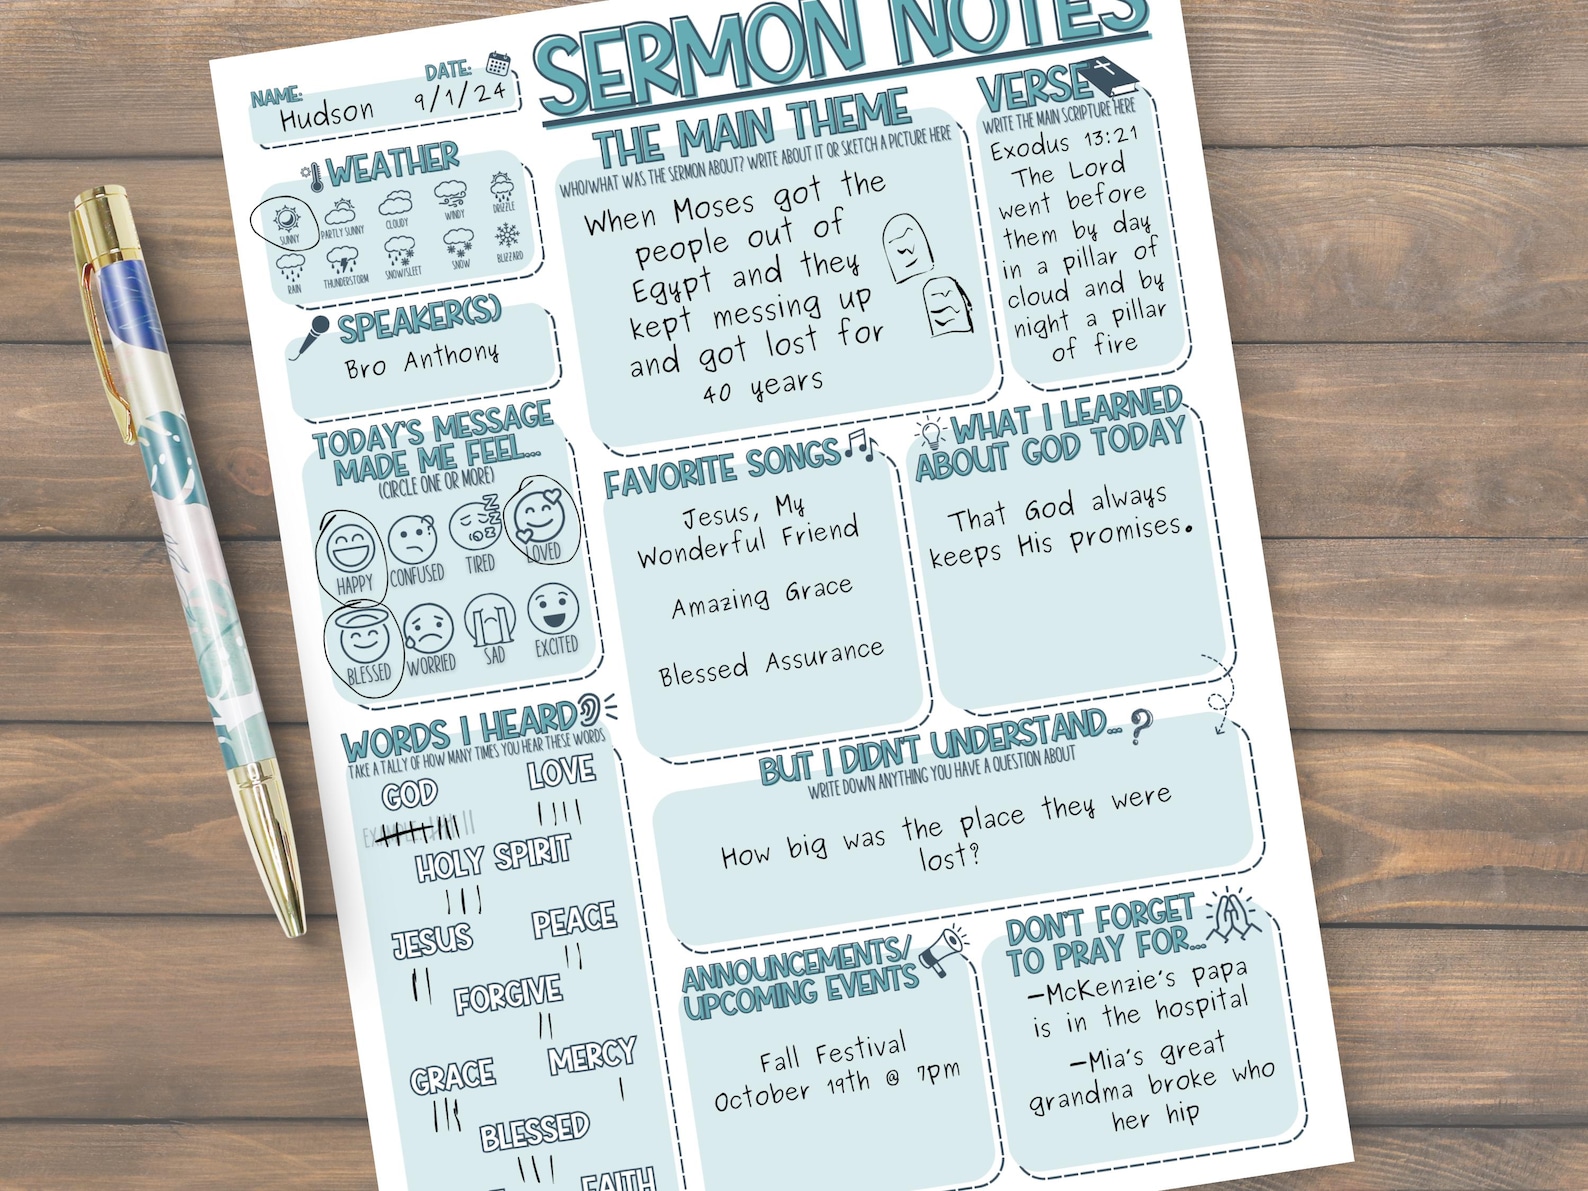 SERMON NOTES
NAME:
Hudson
DATE:
9/1/24
WEATHER
SUNNY
PARTLY SUNNY
CLOUDY
WINDY
DRIZZLE
RAIN
THUNDERSTORM
SNOW/SLEET
SNOW
BLIZZARD
SPEAKER(S)
Bro Anthony
TODAY'S MESSAGE
MADE ME FEEL...
(CIRCLE ONE OR MORE)
HAPPY
CONFUSED
TIRED
LOVED
BLESSED
WORRIED
SAD
EXCITED
WORDS I HEARD
TAKE A TALLY OF HOW MANY TIMES YOU HEAR THESE WORDS
GOD
LOVE
EXAMPLE:
HOLY SPIRIT
JESUS
PEACE
FORGIVE
GRACE
MERCY
BLESSED
FAITH
THE MAIN THEME
WHO/WHAT WAS THE SERMON ABOUT? WRITE ABOUT IT OR SKETCH A PICTURE HERE
When Moses got the
people out of
Egypt and they
kept messing up
and got lost for
40 years
VERSE
WRITE THE MAIN SCRIPTURE HERE
Exodus 13:21
The Lord
went before
them by day
in a pillar of
cloud and by
night a pillar
of fire
FAVORITE SONGS
Jesus, My
Wonderful Friend
Amazing Grace
Blessed Assurance
WHAT I LEARNED
ABOUT GOD TODAY
That God always
keeps His promises.
BUT I DIDN'T UNDERSTAND...?
WRITE DOWN ANYTHING YOU HAVE A QUESTION ABOUT
How big was the place they were
lost?
ANNOUNCEMENTS/
UPCOMING EVENTS
Fall Festival
October 19th @ 7pm
DON'T FORGET
TO PRAY FOR...
-McKenzie's papa
is in the hospital
-Mia's great
grandma broke who
her hip